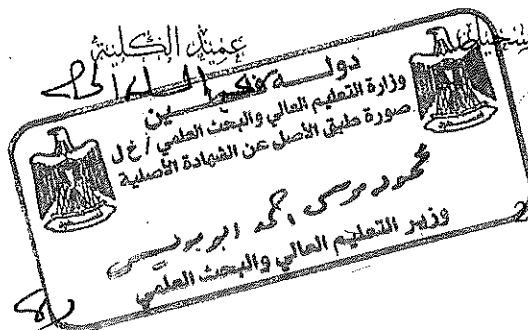 عميد الكلية
دولة فلسطين
وزارة التعليم العالي والبحث العلمي / خ ل
صورة طبق الأصل عن الشهادة الأصلية
محمود موسى احمد ابو
وزير التعليم العالي والبحث العلمي